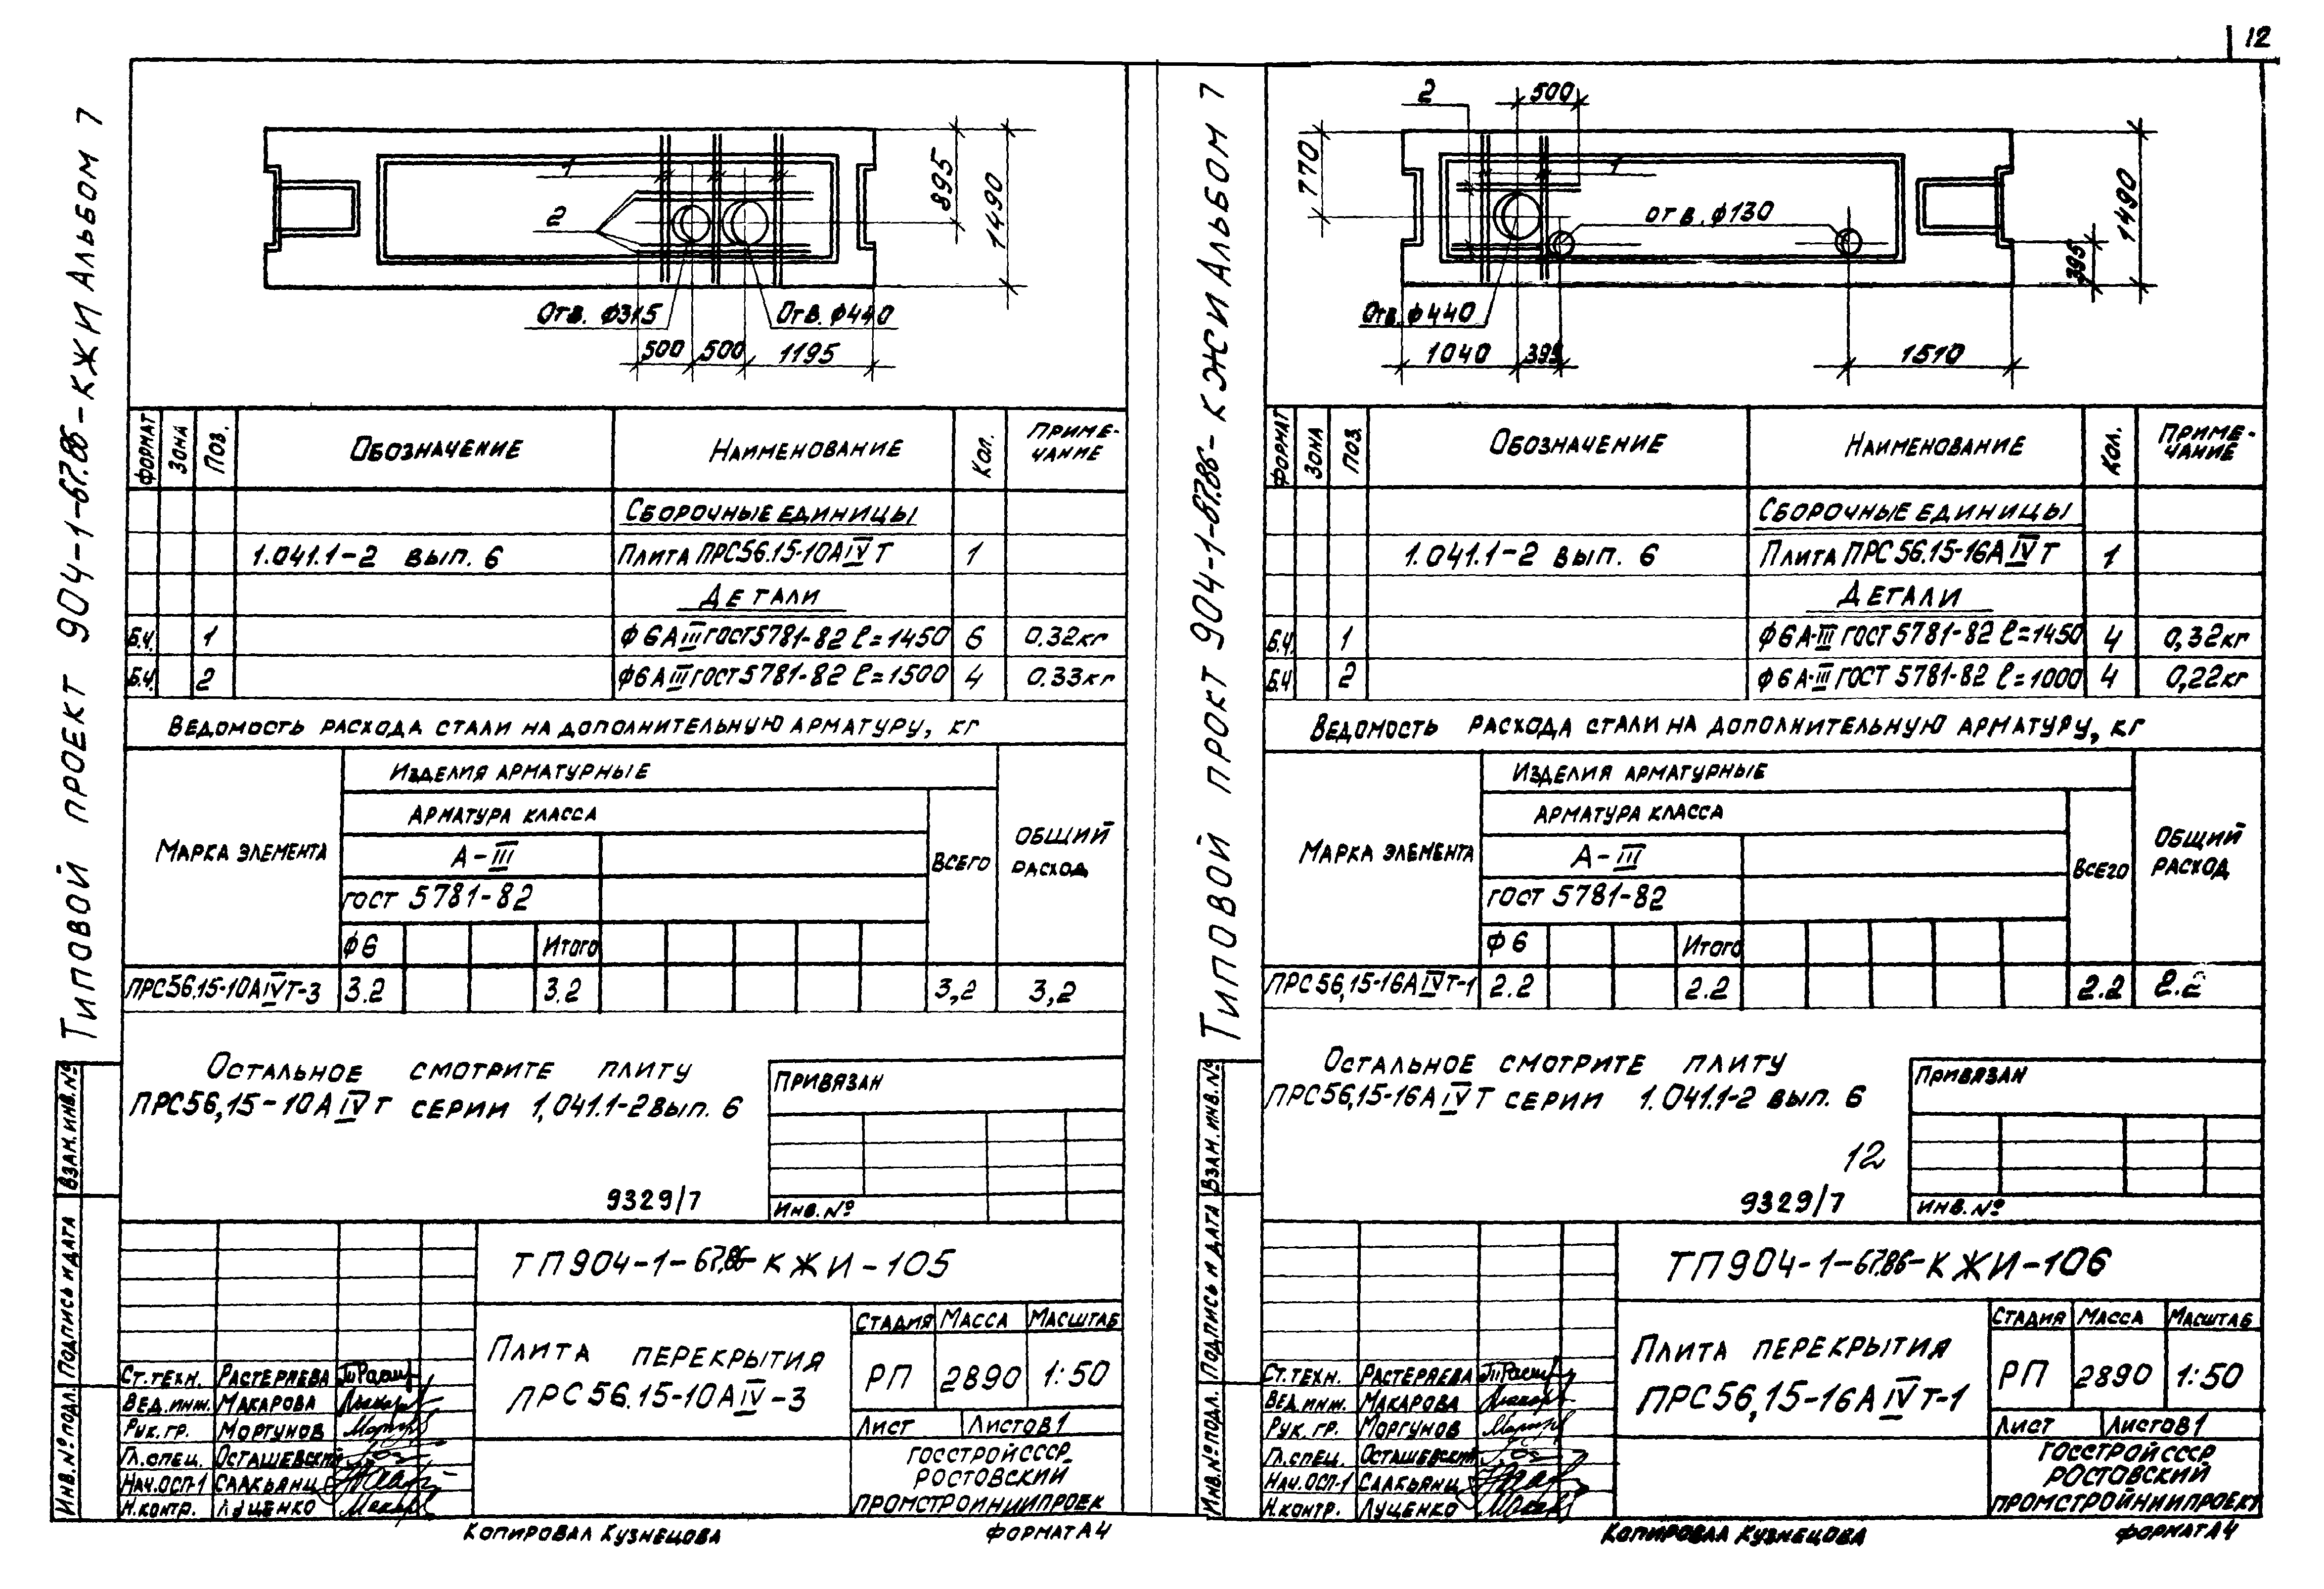 12
Типовой проект 904-1-67.86-КЖИ Альбом 7
1
2
895
1490
Отв. ф315
Отв. ф440
500
500
1195
Формат
Зона
Поз.
Обозначение
Наименование
Кол.
Приме-
чание
Сборочные единицы
1.041.1-2 вып. 6
Плита ПРС56.15-10АIVТ
1
Детали
Б.ч.
1
ф6АIII ГОСТ5781-82 ℓ=1450
6
0.32кг
Б.ч.
2
ф6АIII ГОСТ5781-82 ℓ=1500
4
0.33кг
Ведомость расхода стали на дополнительную арматуру, кг
Марка элемента
Изделия арматурные
Арматура класса
А-III
ГОСТ 5781-82
Всего
Общий
расход
ф6
Итого
ПРС56.15-10АIVТ-3
3.2
3.2
3,2
3,2
Остальное смотрите плиту
ПРС56,15-10АIVТ серии 1,041.1-2 вып. 6
Привязан
Инв.№
9329/7
Взам.инв.№
Подпись и дата
Инв.№подл.
ТП904-1-67.86-КЖИ-105
Плита перекрытия
ПРС56.15-10АIV-3
Стадия
Масса
Масштаб
РП
2890
1:50
Лист
Листов 1
Госстрой СССР
Ростовский
Промстройниипроек
Ст.техн. Растеряева
Вед.инж. Макарова
Рук.гр. Моргунов
Гл.спец. Осташевский
Нач.ОСП-1 Саакьянц
Н.контр. Луценко
Копировал Кузнецова
Формат А4
Типовой прокт 904-1-67.86-КЖИ Альбом 7
2
500
770
1
отв. ф130
1490
395
Отв. ф440
1040
395
1510
Формат
Зона
Поз.
Обозначение
Наименование
Кол.
Приме-
чание
Сборочные единицы
1.041.1-2 вып. 6
Плита ПРС56.15-16АIVТ
1
Детали
Б.ч.
1
ф6А-III ГОСТ5781-82 ℓ=1450
4
0,32кг
Б.ч
2
ф6А-III ГОСТ 5781-82 ℓ=1000
4
0,22кг
Ведомость расхода стали на дополнительную арматуру, кг
Марка элемента
Изделия арматурные
Арматура класса
А-III
ГОСТ 5781-82
Всего
Общий
расход
ф6
Итого
ПРС56,15-16АIVТ-1
2.2
2.2
2.2
2.2
Остальное смотрите плиту
ПРС56,15-16АIVТ серии 1.041.1-2 вып. 6
12
9329/7
Привязан
Инв.№
Взам.инв.№
Подпись и дата
Инв.№подл.
ТП904-1-67.86-КЖИ-106
Плита перекрытия
ПРС56,15-16АIVТ-1
Стадия
Масса
Масштаб
РП
2890
1:50
Лист
Листов 1
Госстрой СССР
Ростовский
Промстройниипроект
Ст.техн. Растеряева
Вед.инж. Макарова
Рук.гр. Моргунов
Гл.спец. Осташевский
Нач.ОСП-1 Саакьянц
Н.контр. Луценко
Копировал Кузнецова
Формат А4